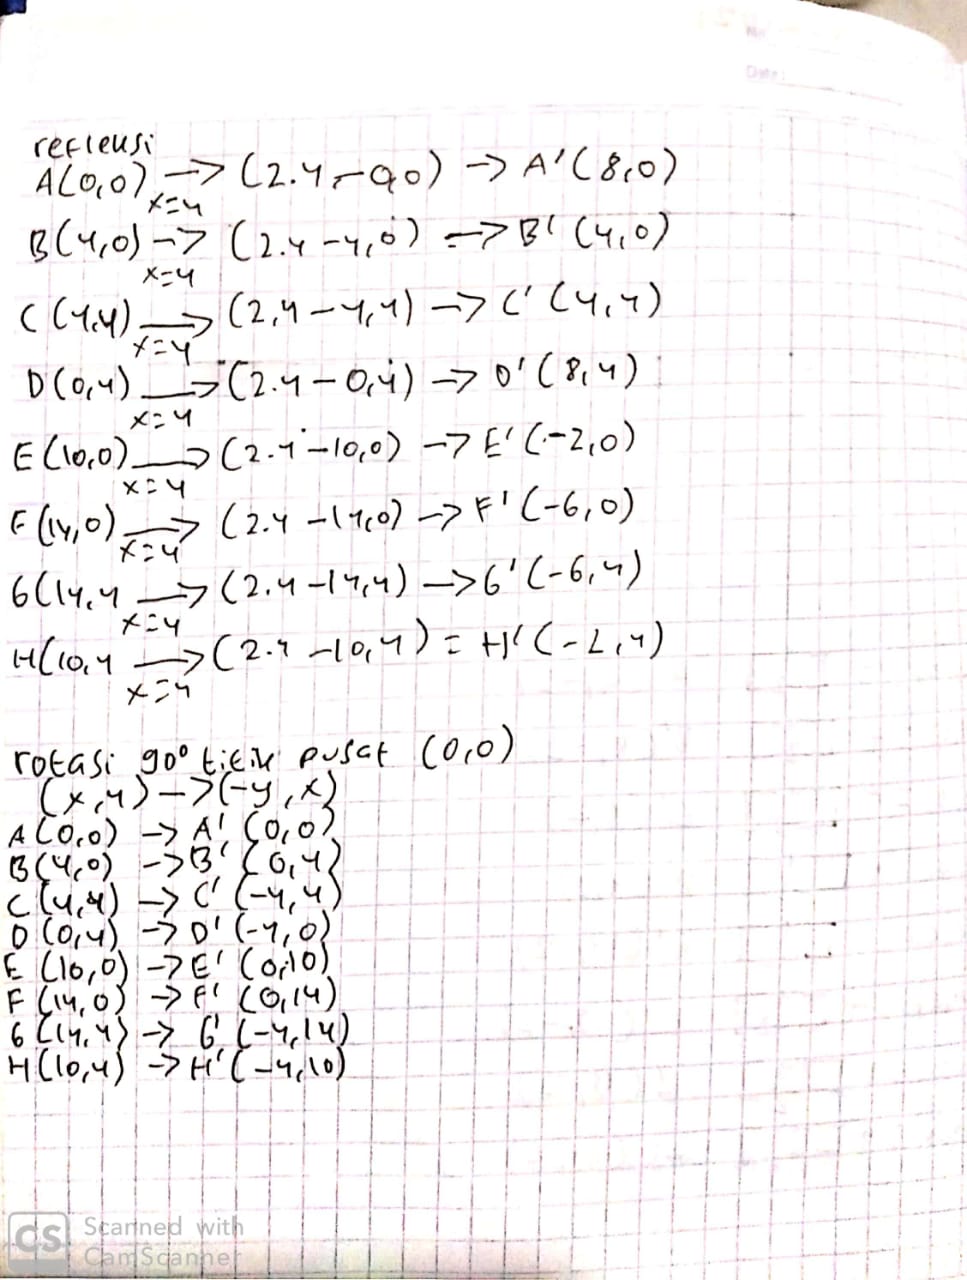 No
Date:
refleksi
A(0,0) → (2.4-0,0) → A'(8,0)
x=4
B(4,0) → (2.4-4,0) → B'(4,0)
x=4
C(4,4) → (2,4-4,4) → C'(4,4)
x=4
D(0,4) → (2.4-0,4) → D'(8,4)
x=4
E(10,0) → (2.4-10,0) → E'(-2,0)
x=4
F(14,0) → (2.4-14,0) → F'(-6,0)
x=4
G(14,4 → (2.4-14,4) → G'(-6,4)
x=4
H(10,4 → (2.4-10,4) = H'(-2,4)
x=4
rotasi 90° titik pusat (0,0)
(x,y) → (-y,x)
A(0,0) → A'(0,0)
B(4,0) → B'(0,4)
C(4,4) → C'(-4,4)
D(0,4) → D'(-4,0)
E(10,0) → E'(0,10)
F(14,0) → F'(0,14)
G(14,4) → G'(-4,14)
H(10,4) → H'(-4,10)
CS Scanned with
CamScanner